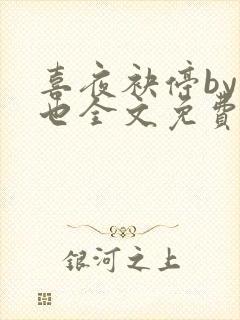 喜夜袂停by
也全文免費
银河之上